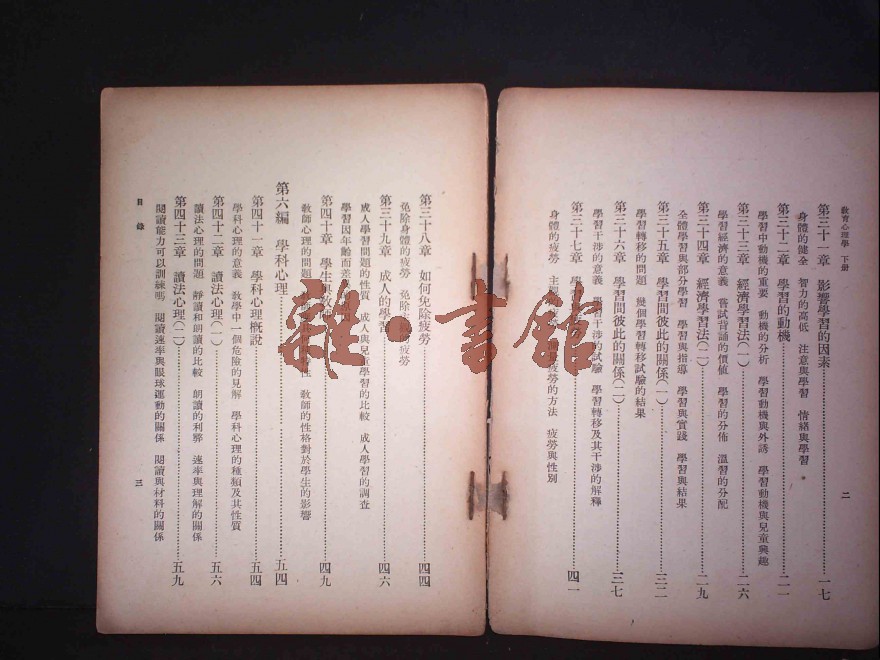 教育心理學 下册
二
第三十一章 影響學習的因素 一七
身體的健全 智力的高低 注意與學習 情緒與學習
第三十二章 學習的動機 二一
學習中動機的重要 動機的分析 學習動機與外誘 學習動機與兒童興趣
第三十三章 經濟學習法(一) 二六
學習經濟的意義 嘗試背誦的價値 學習的分佈 溫習的分配
第三十四章 經濟學習法(二) 二九
全體學習與部分學習 學習與指導 學習與實踐 學習與結果
第三十五章 學習間彼此的關係(一) 三二
學習轉移的問題 幾個學習轉移試驗的結果
第三十六章 學習間彼此的關係(二) 三七
學習干涉的意義 學習干涉的試驗 學習轉移及其干涉的解釋
第三十七章 學 四一
身體的疲勞 主 疲勞的方法 疲勞與性別
第三十八章 如何免除疲勞 四四
免除身體的疲勞 免除 疲勞
第三十九章 成人的學習 四六
成人學習問題的性質 成人與兒童學習的比較 成人學習的調查
學習因年齡而差
第四十章 學生與教師 四九
教師心理的問題 教師的性格對於學生的影響
第六編 學科心理 五四
第四十一章 學科心理概說 五四
學科心理的意義 教學中一個危險的見解 學科心理的種類及其性質
第四十二章 讀法心理(一) 五六
讀法心理的問題 靜讀和朗讀的比較 朗讀的利弊 速率與理解的關係
第四十三章 讀法心理(二) 五九
閱讀能力可以訓練嗎 閱讀速率與眼球運動的關係 閱讀與材料的關係
目錄
三
雜·書館